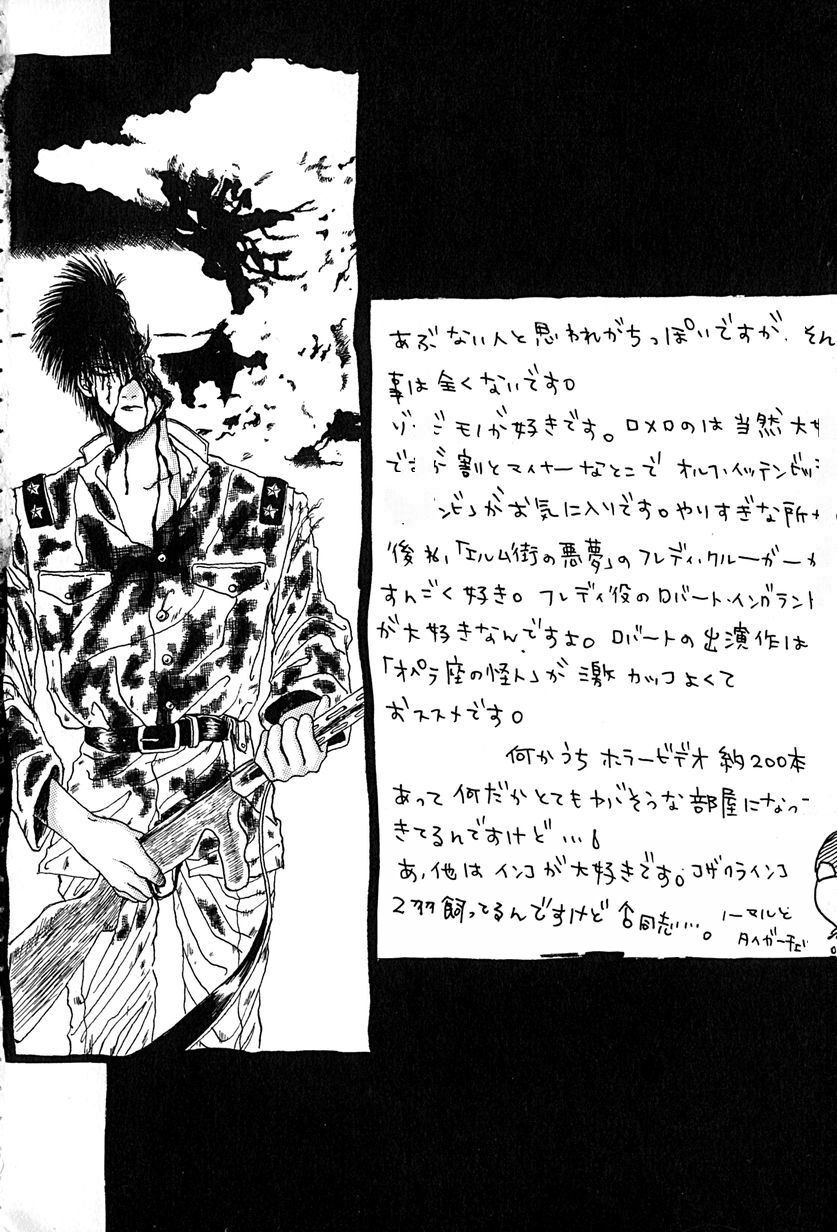 あぶない人と思われがちっぽいですが、そん
事は全くないです。
モノが好きです。ロメロのは当然大
割とマイナーなとこで オルフ・イッテンビッ
ンビ」がお気に入りです。やりすぎな所
後ね、「エルム街の悪夢」のフレディ・クルーガーが
すんごく好き。フレディ役のロバート・イングランド
が大好きなんですよ。ロバートの出演作は
「オペラ座の怪人」が 激 カッコよくて
おススメです。
何かうち ホラービデオ 約200本
あって 何だかとてもヤバそうな部屋になっ
きてるんですけど…
あ、他は インコが 大好きです。コザクラインコ
2羽飼ってるんですけど 同志…。ノーマルと
タイガーチェ